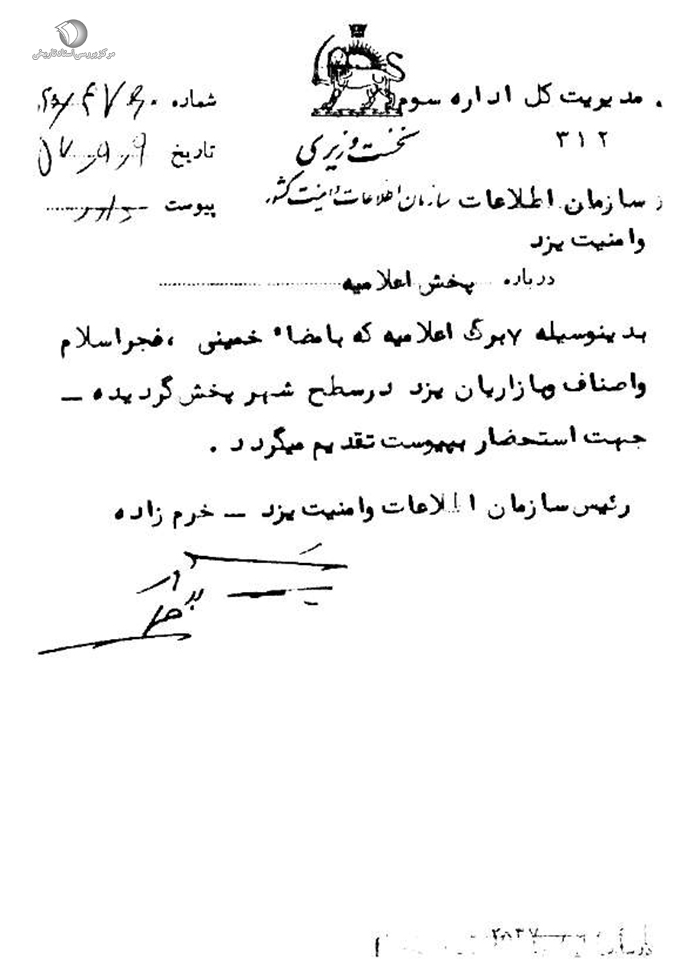 مرکز بررسی اسناد تاریخی
مدیریت کل اداره سوم
۳۱۲
شماره
نخست وزیری
تاریخ ۵۷٫۹٫۹
سازمان اطلاعات و امنیت کشور
پیوست دارد
سازمان اطلاعات
وامنیت یزد
درباره پخش اعلامیه
بدینوسیله ۷ برگ اعلامیه که بامضاء خمینی ، فجراسلام
واصناف وبازاریان یزد درسطح شهر پخش گردیده –
جهت استحضار بپیوست تقدیم میگردد .
رئیس سازمان اطلاعات وامنیت یزد – خرم زاده